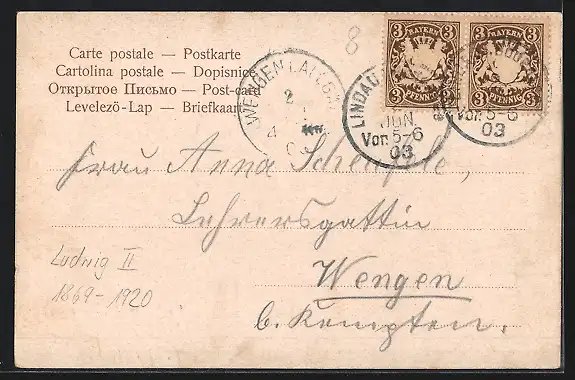 Carte postale — Postkarte
Cartolina postale — Dopisnice
Открытое Письмо — Post-card
Levelező-Lap — Briefkaart
8
3 BAYERN 3
PFENNIG
3 BAYERN 3
PFENNIG
WENGEN
2
4
LINDAU
JUN.
Vor. 5-6
03
Vor. 5-6
03
Frau Anna Scheufele,
Lehrersgattin
Wengen
b. Kempten.
Ludwig II
1869-1920